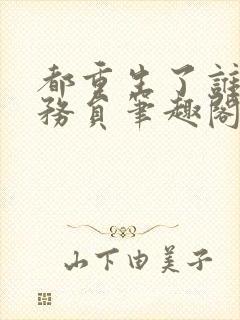 都重生了誰
務員筆趣閣
山下由美子